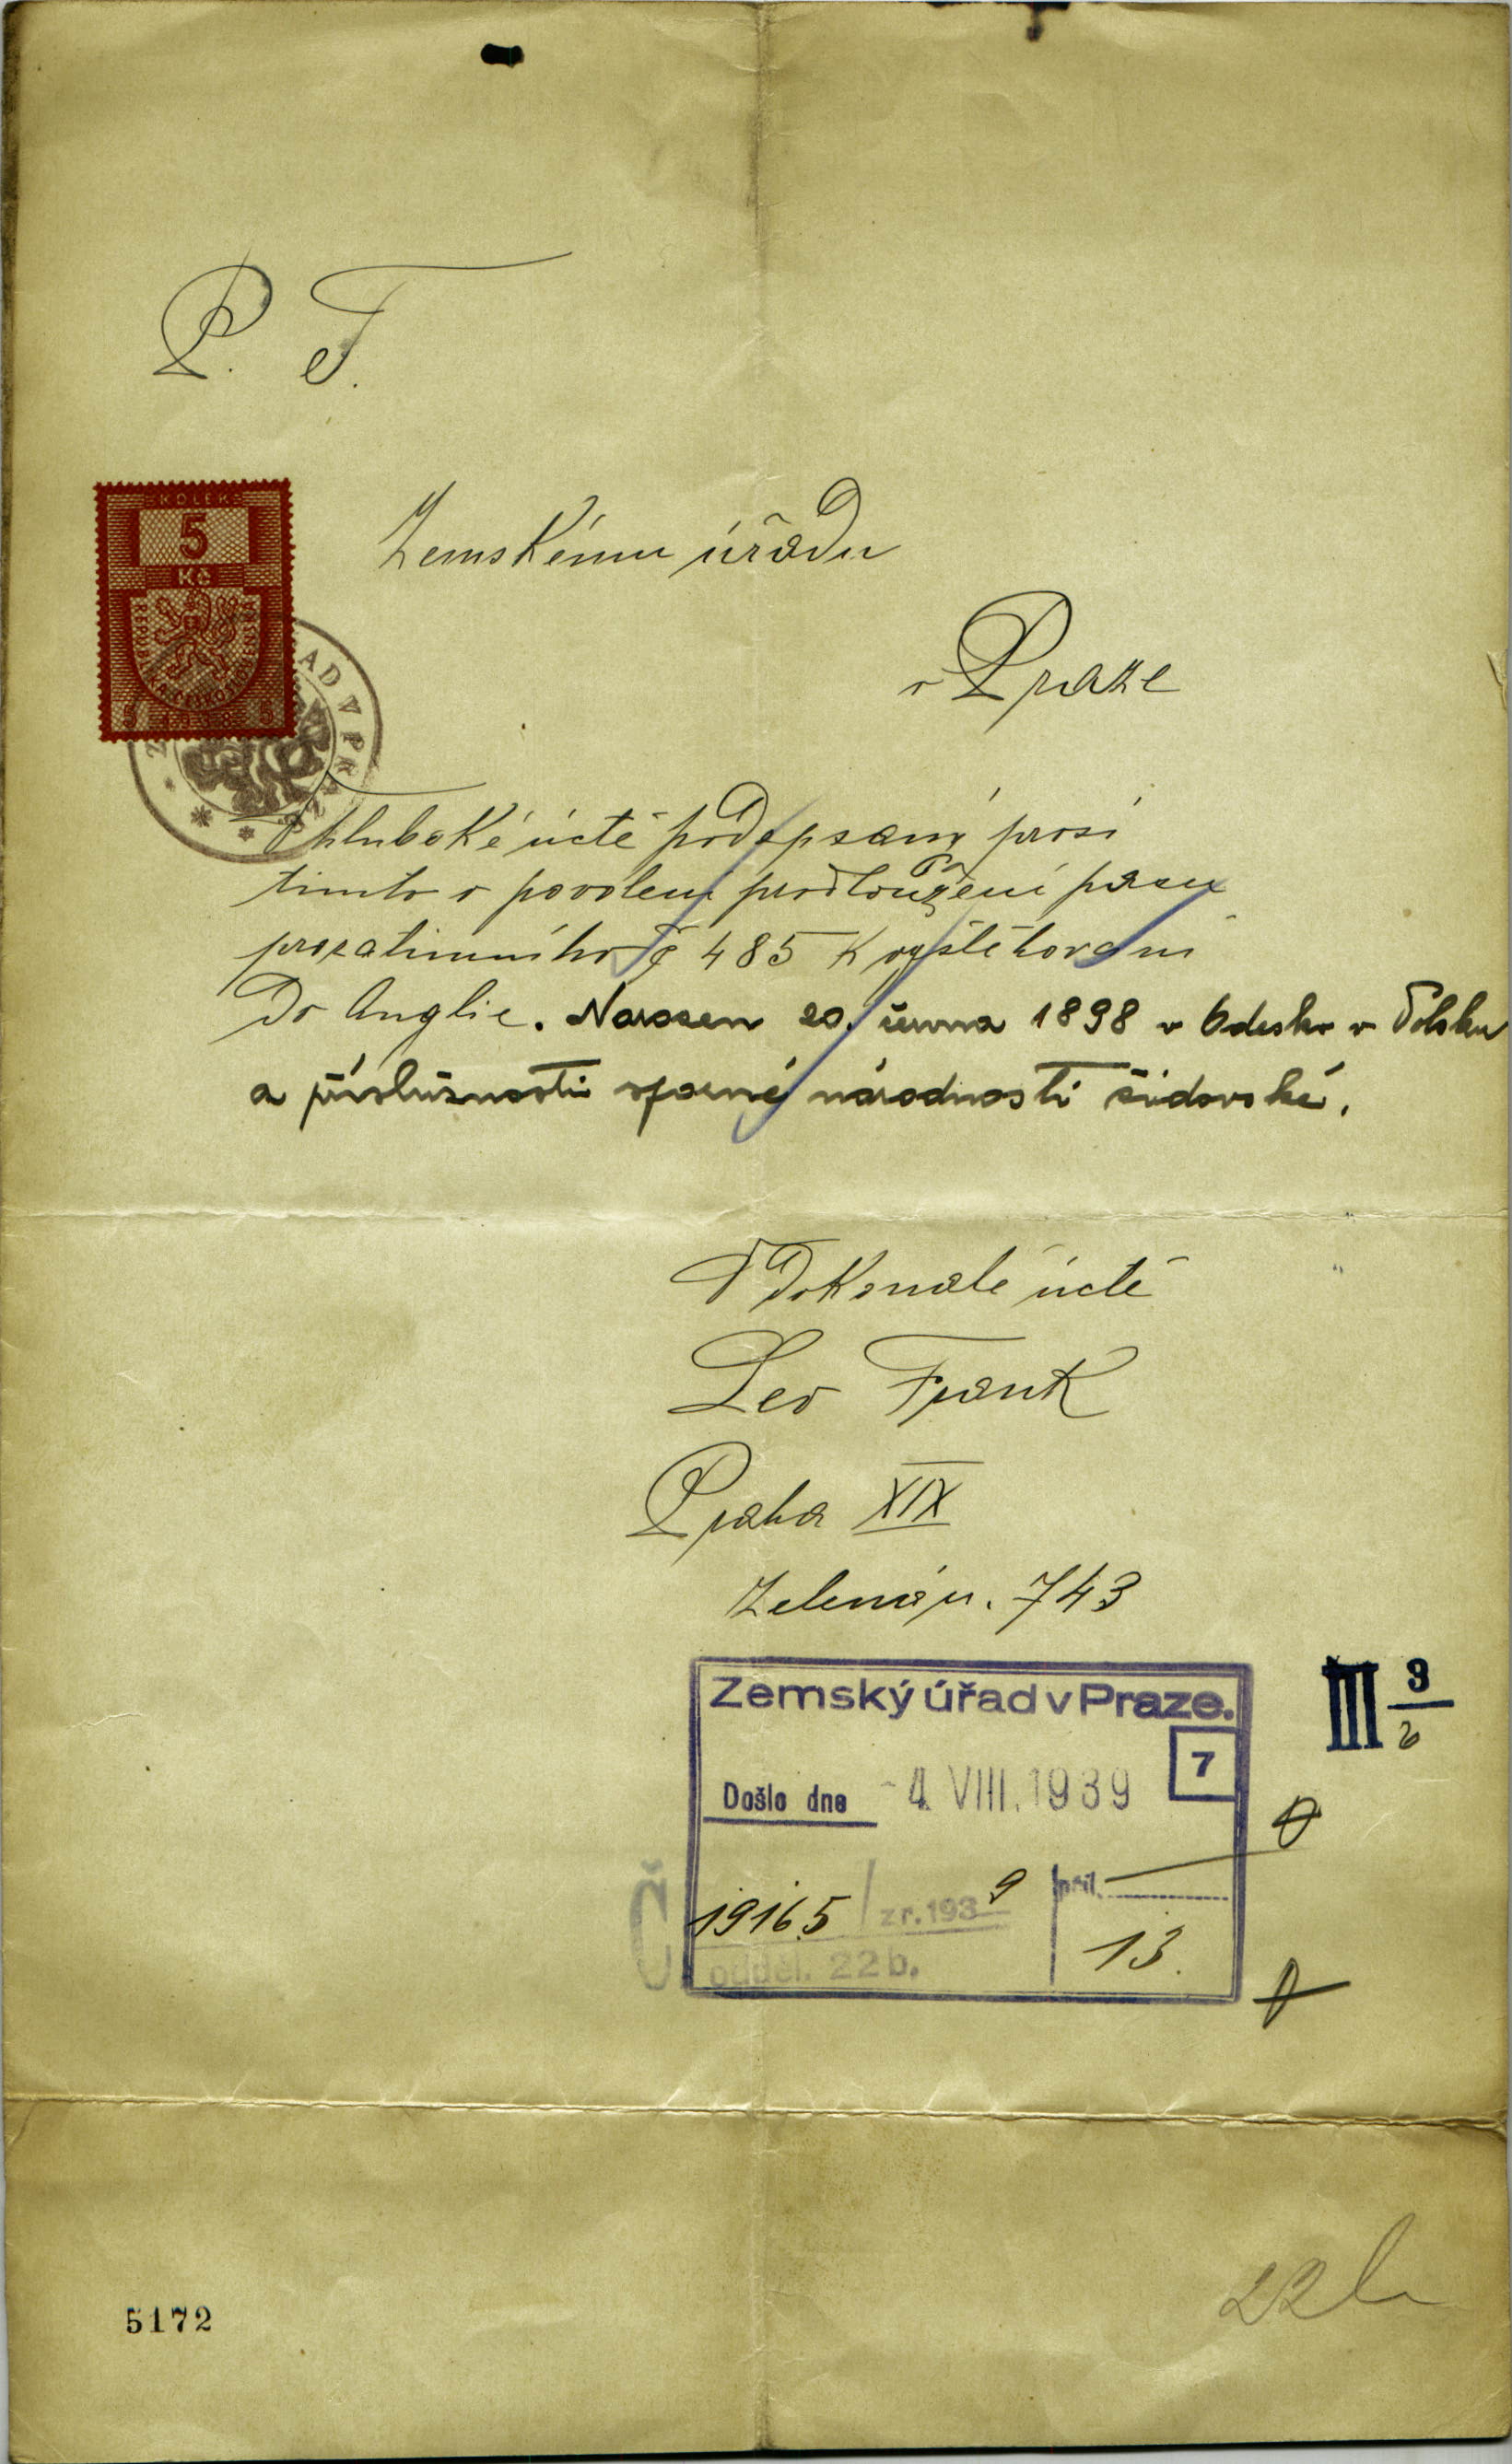 P. T.
KOLEK
5
Kč
5 1938 5
Zemskému úřadu
v Praze
V hluboké úctě podepsaný prosí
tímto o povolení prodloužení pasu
prozatimního č 485 k vystěhování
do Anglie. Narozen 20. června 1898 v Odesko v Polsku
a příslušnosti sporné národnosti židovské.
V dokonalé úctě
Leo Frank
Praha XIX
Zelená u. 743
Zemský úřad v Praze.
7
III 3
Došlo dne - 4. VIII. 1939
Č 19165 / z r. 1939
příl.
odděl. 22b.
13.
22b
5172